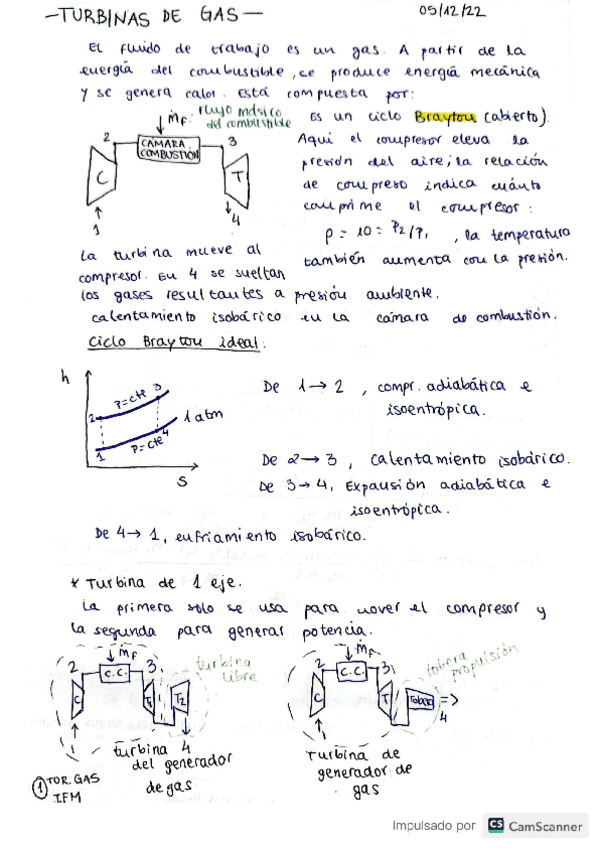 -TURBINAS DE GAS-
05/12/22
El fluido de trabajo es un gas. A partir de la
energía del combustible, se produce energía mecánica
y se genera calor. Está compuesta por:
ṁF: Flujo másico
del combustible
2
CÁMARA
COMBUSTIÓN
3
C
T
1
4
Es un ciclo Brayton (abierto).
Aquí el compresor eleva la
presión del aire; la relación
de compreso indica cuánto
comprime el compresor:
ρ = 10 = P2/P1 , la temperatura
también aumenta con la presión.
La turbina mueve al
compresor. En 4 se sueltan
los gases resultantes a presión ambiente.
calentamiento isobárico en la cámara de combustión.
Ciclo Brayton ideal:
h
2
P=cte
3
1 atm
1
P=cte
4
S
De 1→2 , compr. adiabática e
isoentrópica.
De 2→3, calentamiento isobárico.
De 3→4, Expansión adiabática e
isoentrópica.
De 4→1, enfriamiento isobárico.
* Turbina de 1 eje.
La primera solo se usa para mover el compresor y
la segunda para generar potencia.
ṁF
2
C.C.
3
turbina
libre
C
T1
T2
1
4
turbina
del generador
de gas
ṁF
2
C.C.
3
tobera
propulsión
C
T
Tobera
4
1
Turbina de
generador de
gas
1 TOR.GAS
I.FM
Impulsado por CS CamScanner